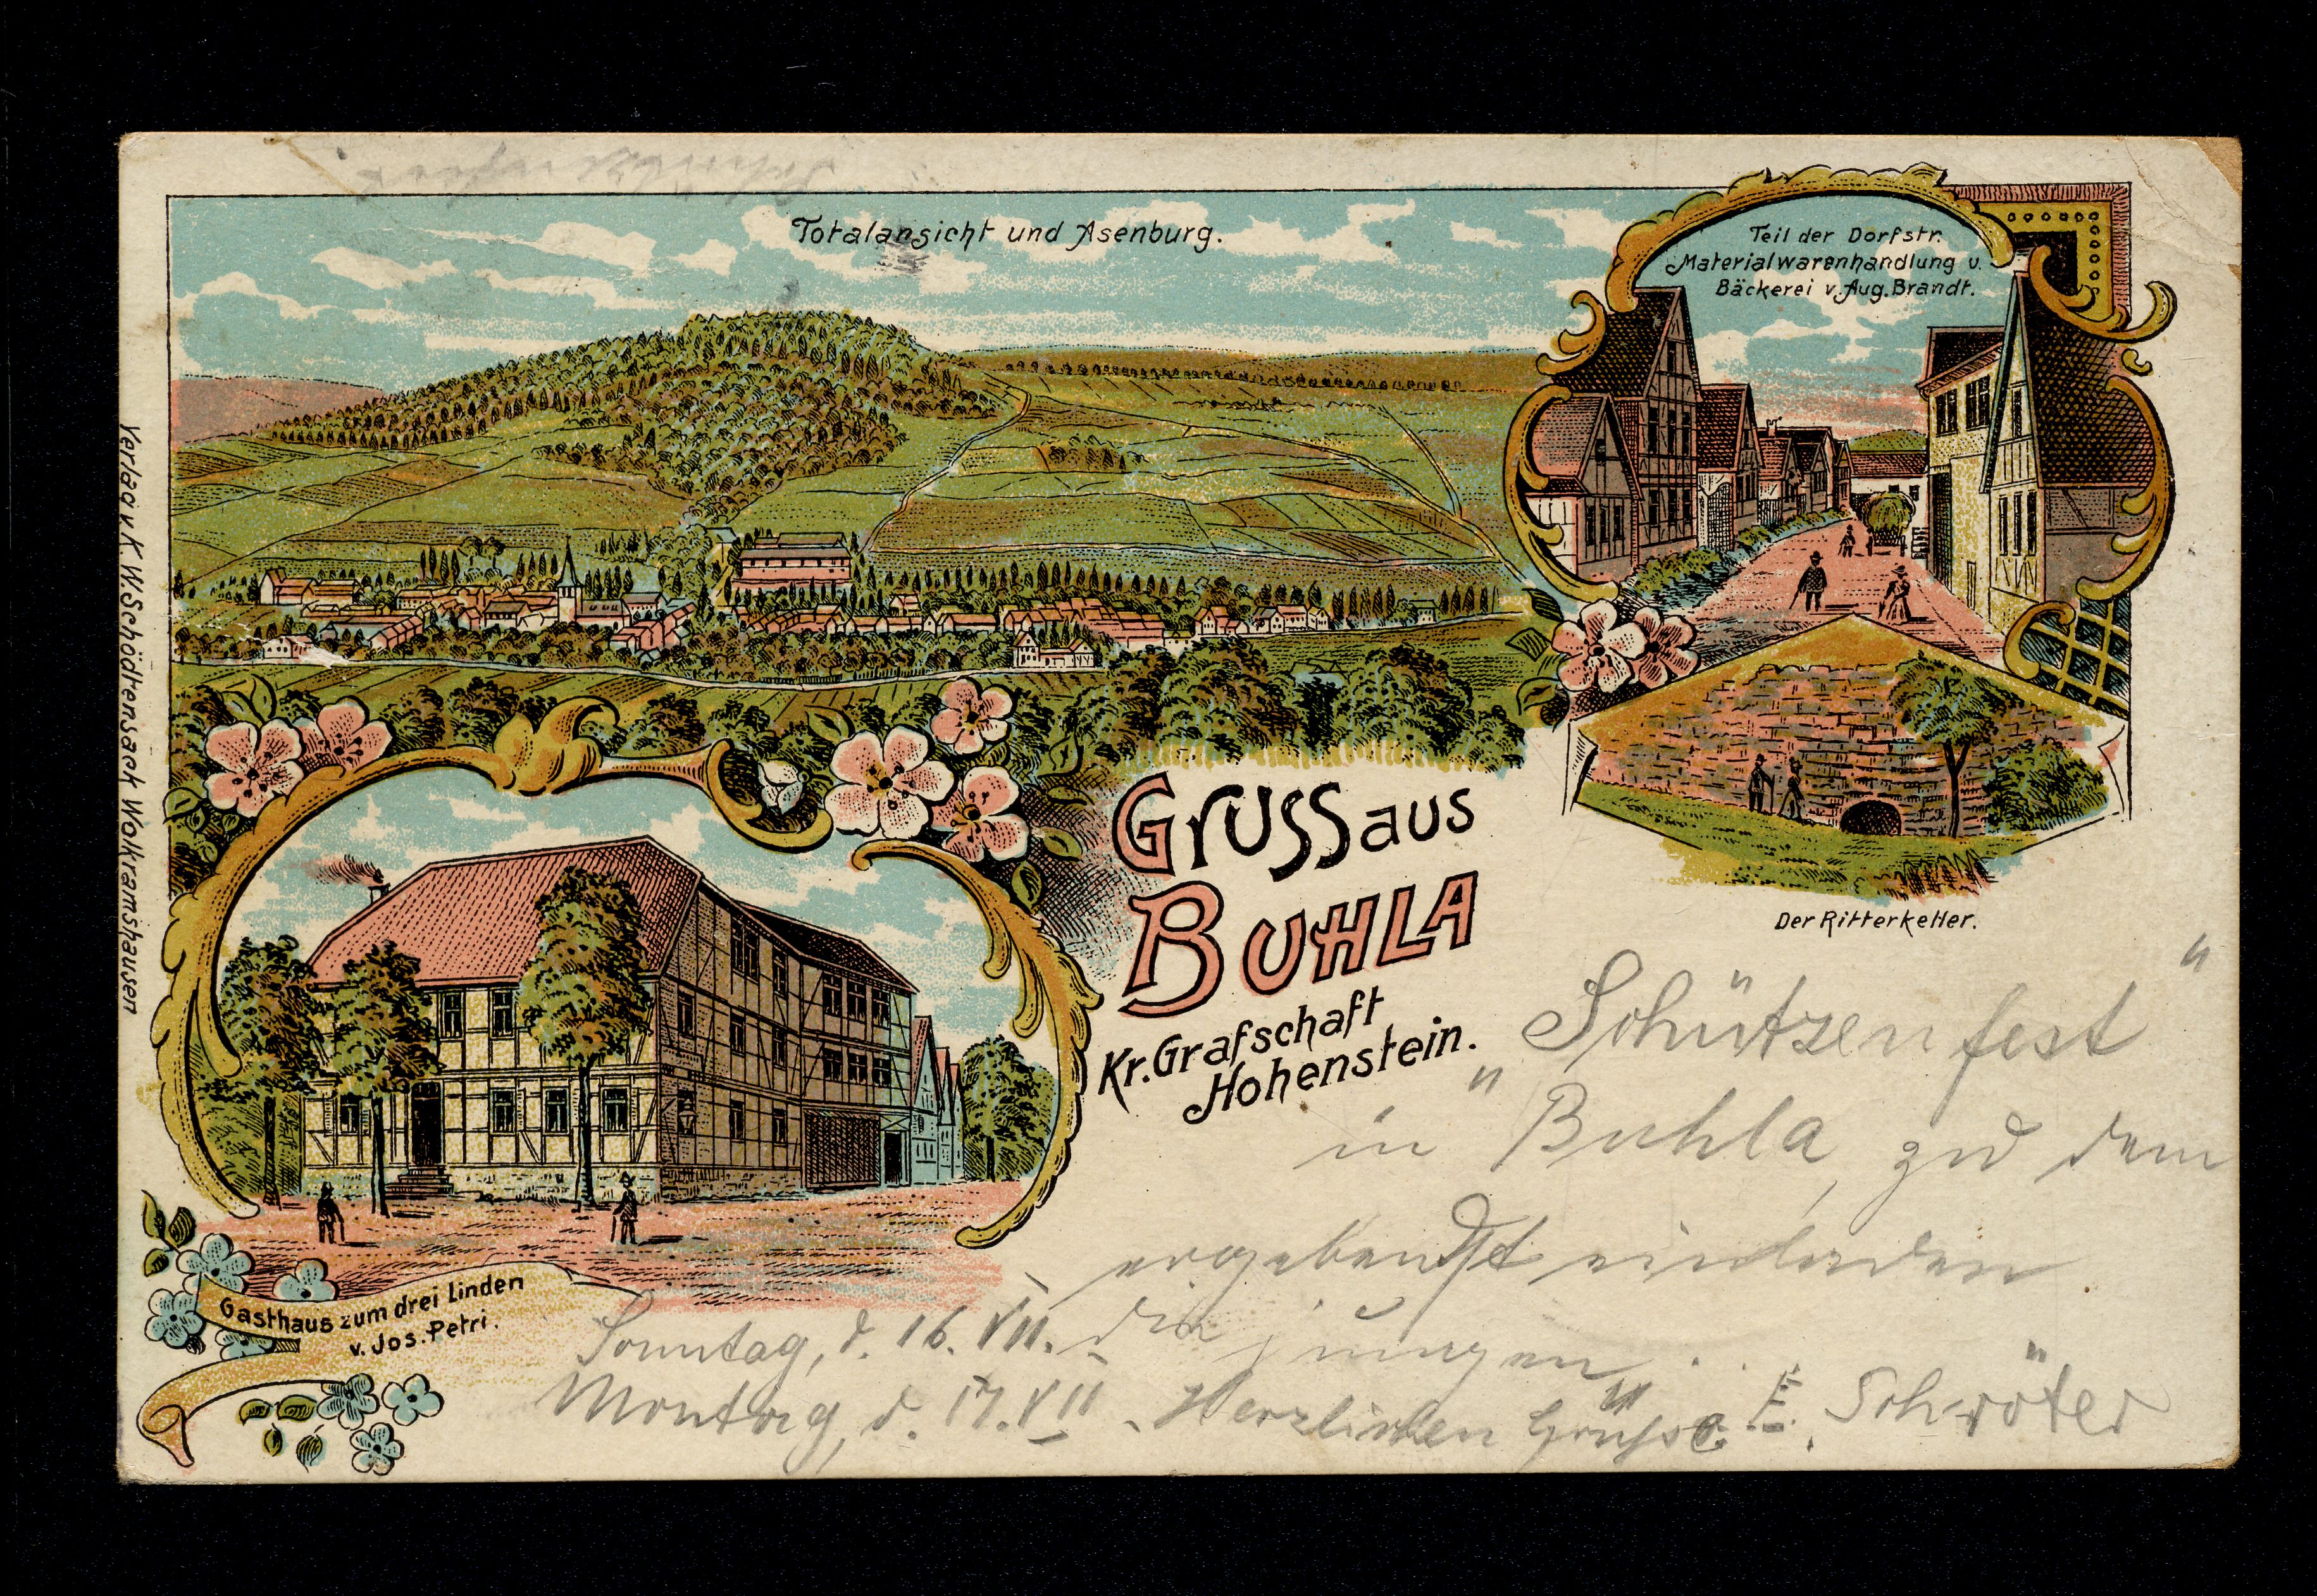 Totalansicht und Asenburg.
Teil der Dorfstr.
Materialwarenhandlung u.
Bäckerei v. Aug. Brandt.
Verlag v. K. W. Schödtensack Wolkramshausen
Gruss aus
Buhla
Kr. Grafschaft
Hohenstein.
Der Ritterkeller.
Gasthaus zum drei Linden
v. Jos. Petri.
"Schützenfest"
in "Buhla, zu dem
ergebendst einladen
die jungen
Sonntag, d. 16. VII.
Montag, d. 17. VII. Herzlichen Gruss E. Schröter